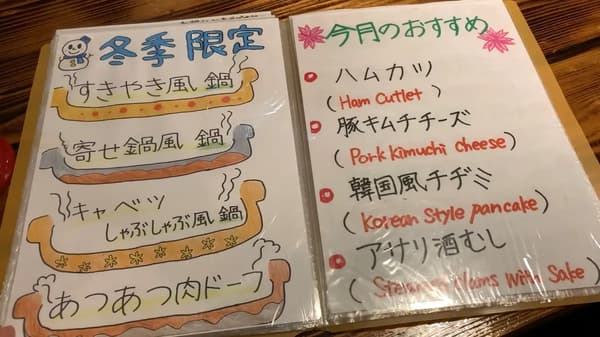 冬季限定
すきやき風鍋
寄せ鍋風鍋
キャベツ
しゃぶしゃぶ風鍋
あつあつ肉ドーフ
今月のおすすめ
ハムカツ
(Ham Cutlet)
豚キムチチーズ
(Pork Kimuchi cheese)
韓国風チヂミ
(Korean Style pancake)
アサリ酒むし
(Steamed Clams with Sake)